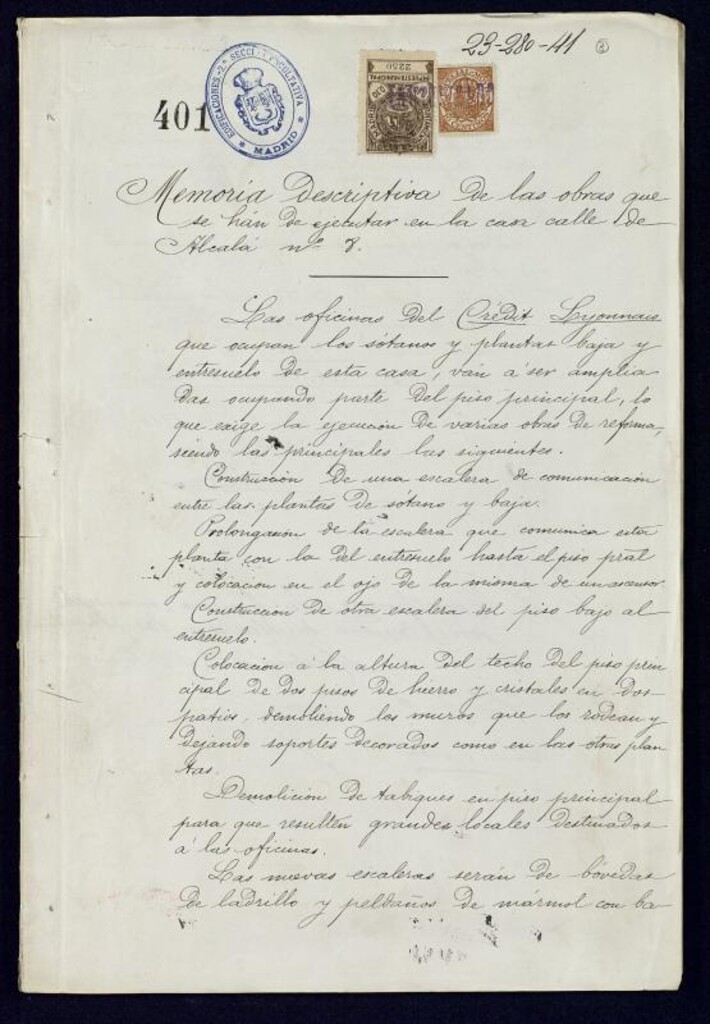 23-280-41
401
EDIFICACIONES.-2ª SECCION FACULTATIVA
MADRID
2250
Memoria Descriptiva De las obras que
se hán de ejecutar en la casa calle de
Alcalá nº 8.
Las oficinas del Crédit Lyonnais
que ocupan los sótanos y plantas baja y
entresuelo de esta casa, ván á ser amplia
das ocupando parte del piso principal, lo
que exige la ejecución de varias obras de reforma,
siendo las principales las siguientes.
Construcción de una escalera de comunicación
entre las plantas de sótano y baja.
Prolongación de la escalera que comunica esta
planta con la del entresuelo hasta el piso pral
y colocación en el ojo de la misma de un ascensor
Construcción de otra escalera del piso bajo al
entresuelo.
Colocación á la altura del techo del piso prin
cipal de dos pisos de hierro y cristales en dos
patios, demoliendo los muros que los rodean y
dejando soportes decorados como en las otras plan
tas.
Demolición de tabiques en piso principal
para que resulten grandes locales destinados
á las oficinas.
Las nuevas escaleras serán de bóvedas
de ladrillo y peldaños de mármol con ba-